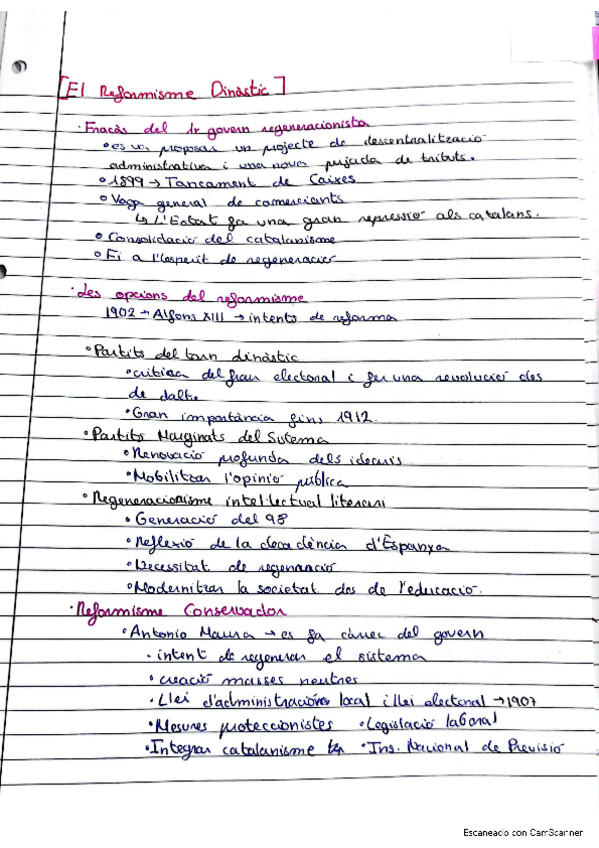 [El Reformisme Dinàstic]
· Fracàs del 1r govern regeneracionista
° es va proposar un projecte de descentralització
administrativa i una nova pujada de tributs.
° 1899 → Tancament de Caixes
° Vaga general de comerciants
↳ L'Estat fa una gran repressió als catalans.
° Consolidació del catalanisme
° Fi a l'esperit de regeneració
· Les opcions del reformisme
1902 → Alfons XIII → intents de reforma
° Partits del torn dinàstic
° crítica del frau electoral i fer una revolució des
de dalt.
° Gran importància fins 1912.
° Partits Marginats del Sistema
° Renovació profunda dels idearis
° Mobilitzar l'opinió pública
° Regeneracionisme intel·lectual literari
° Generació del 98
° Reflexió de la decadència d'Espanya
° Necessitat de regeneració
° Modernitzar la societat des de l'educació.
· Reformisme Conservador
° Antonio Maura → es fa càrrec del govern
· intent de regenerar el sistema
° creació masses neutres
· Llei d'administració local i llei electoral → 1907
° Mesures proteccionistes ° Legislació laboral
° Integrar catalanisme ° Ins. Nacional de Previsió
Escaneado con CamScanner